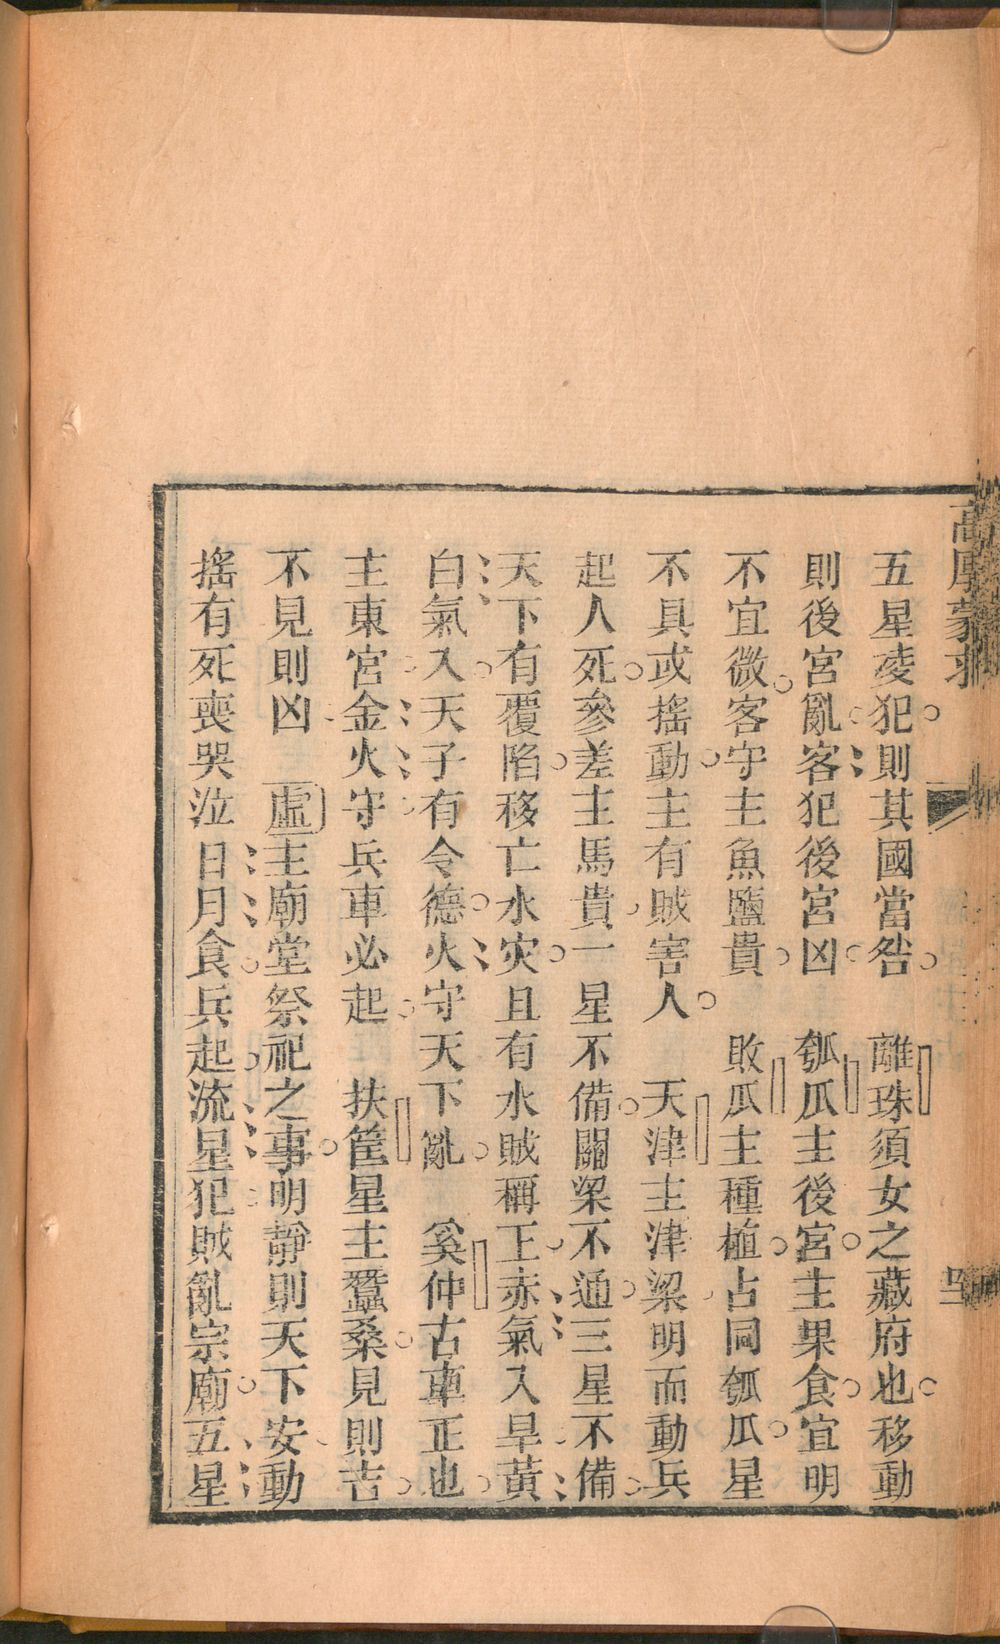 高厚蒙求
五星凌犯則其國當咎　離珠須女之藏府也移動
則後宮亂客犯後宮凶　瓠瓜主後宮主果食宜明
不宜微客守主魚鹽貴　敗瓜主種植占同瓠瓜星
不具或搖動主有賊害人　天津主津梁明而動兵
起人死參差主馬貴一星不備關梁不通三星不備
天下有覆陷移亡水灾且有水賊稱王赤氣入旱黃
白氣入天子有令德火守天下亂　奚仲古車正也
主東宮金火守兵車必起　扶筐星主蠶桑見則吉
不見則凶　虛主廟堂祭祀之事明靜則天下安動
搖有死喪哭泣日月食兵起流星犯賊亂宗廟五星